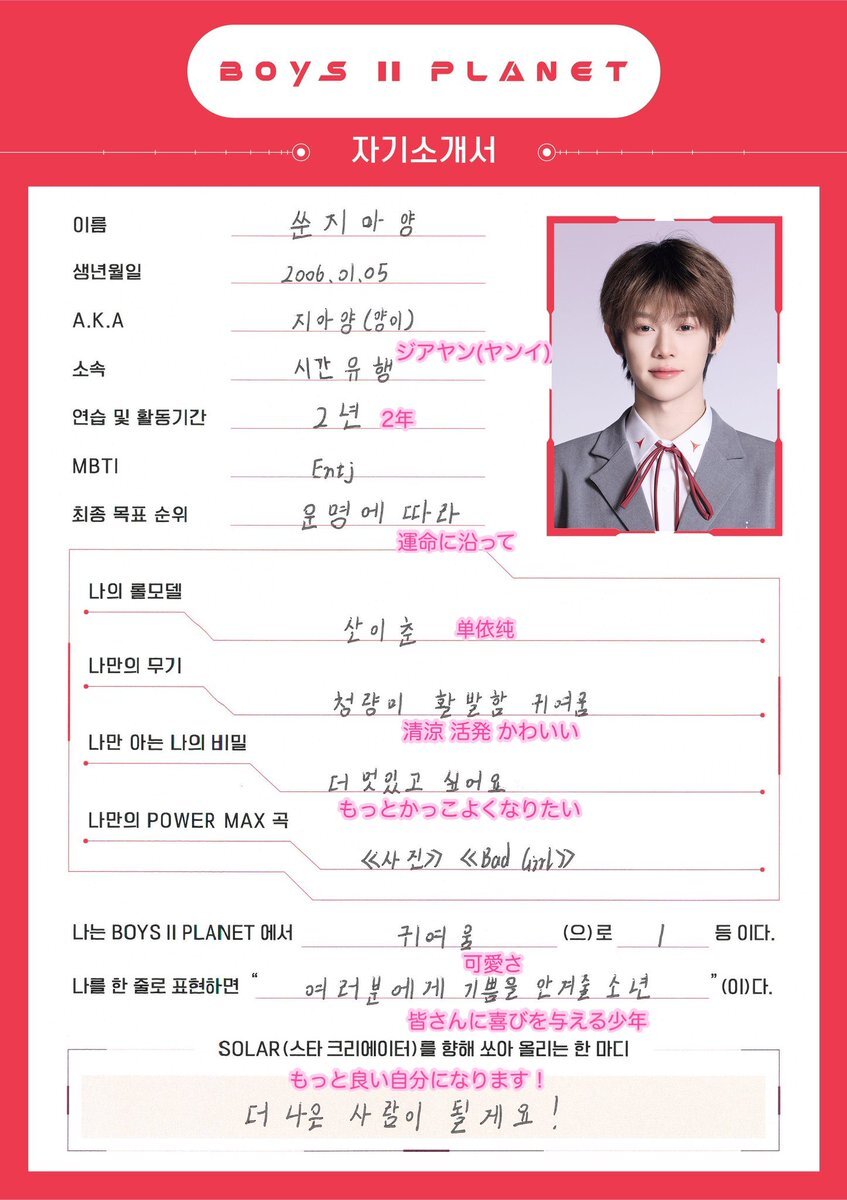 BOYS II PLANET
자기소개서
이름 쑨지아양
생년월일 2006.01.05
A.K.A 지아양(양이)
ジアヤン(ヤンイ)
소속 시간유행
연습 및 활동기간 2년 2年
MBTI Entj
최종 목표 순위 운명에 따라
運命に沿って
나의 롤모델
산이춘 单依纯
나만의 무기
청량미 활발함 귀여움
清涼 活発 かわいい
나만 아는 나의 비밀
더 멋있고 싶어요
もっとかっこよくなりたい
나만의 POWER MAX 곡
≪사진≫ ≪Bad Girl≫
나는 BOYS II PLANET 에서 귀여움 (으)로 1 등 이다.
可愛さ
나를 한 줄로 표현하면 “여러분에게 기쁨을 안겨줄 소년” (이)다.
皆さんに喜びを与える少年
SOLAR(스타 크리에이터)를 향해 쏘아 올리는 한 마디
もっと良い自分になります！
더 나은 사람이 될게요!